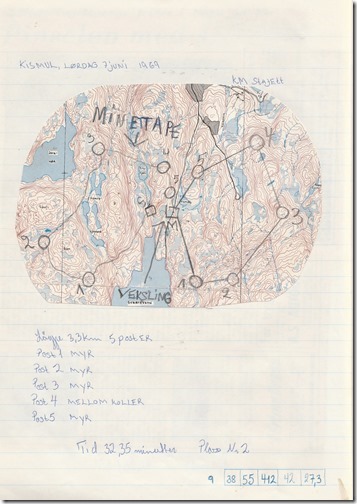 KISMUL, LØRDAG 7 JUNI 1969
KM STAFETT
MIN ETTAPE
3
4
4
5
5
S
M
3
2
1
1
2
VEKSLING
3,3 km 5 POSTER
Post 1 MYR
Post 2 MYR
Post 3 MYR
Post 4 MELLOM KOLLER
Post 5 MYR
Tid 32,35 minutter Plass Nr 2
9 38 55 412 42 27,3